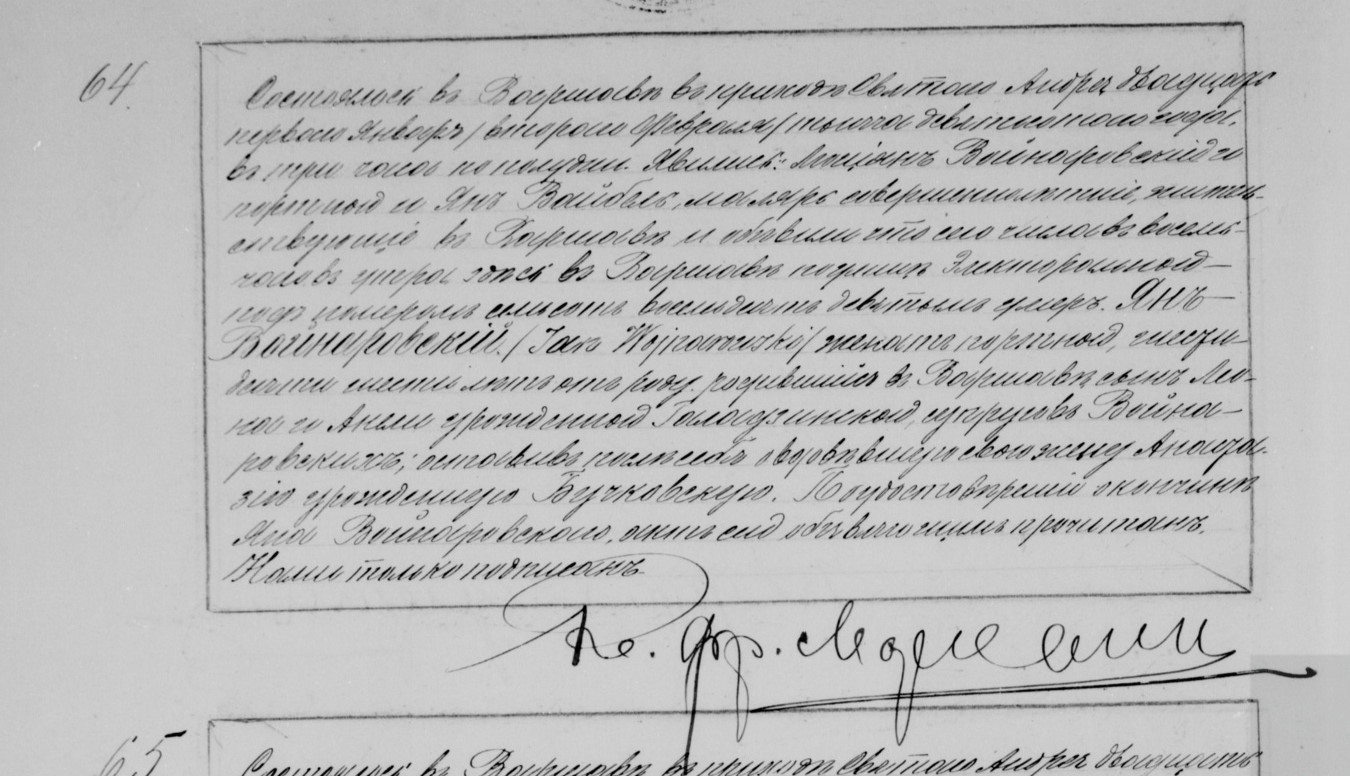 64.
Состоялось въ Варшавѣ въ приходѣ Святого Андрея двадцать
перваго Января /втораго Февраля/ тысяча девятисотаго года,
въ три часа по полудни. Явились: Войнаровскій
портной и Янъ Вайбель, маляръ совершеннолѣтніе, житель-
ствующіе въ Варшавѣ и объявили что сего числа въ восемь
часовъ утра здѣсь въ Варшавѣ по улицѣ Электоральной
подъ номеромъ семьсотъ восемьдесятъ девятымъ умеръ. Янъ
Войнаровскій. /Jan Wojnarowski/ женатъ портной,
десяти шести лѣтъ отъ роду родившійся въ Варшавѣ сынъ Лео-
на и урожденной супруговъ Война-
ровскихъ; оставивъ послѣ себя овдовѣвшую свою жену Анаста-
зію урожденную Бучковскую. По удостовѣреніи о кончинѣ
Яна Войнаровскаго, актъ сей объявляющимъ прочитанъ.
Нами только подписанъ
Кс. Фр.
65
Состоялось въ Варшавѣ въ приходѣ Святого Андрея двадцать